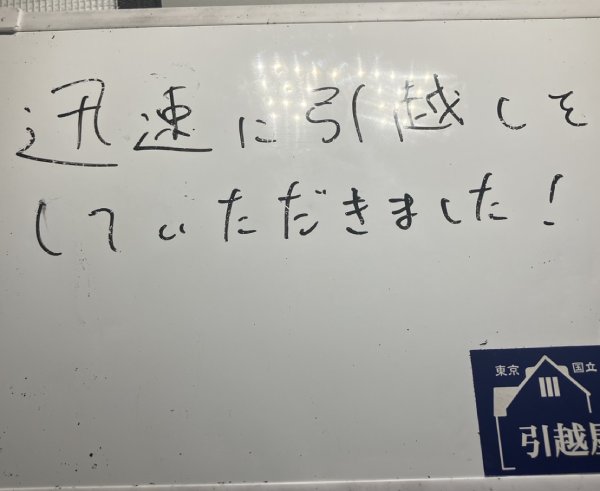 迅速に引越しを
していただきました!
東京 国立
引越屋